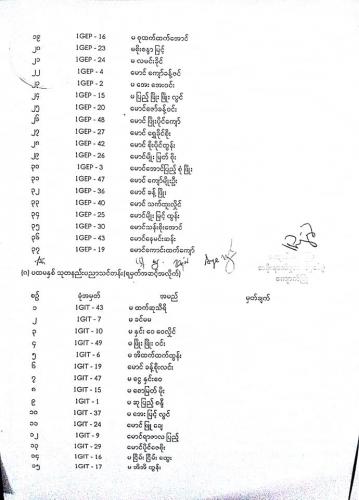 ၁၉ 1GEP - 16 မ စုထက်ထက်အောင်
၂၀ 1GEP - 23 မစိုးစန္ဒာ မြင့်
၂၁ 1GEP - 24 မ လမင်းခိုင်
၂၂ 1GEP - 4 မောင် ကျော်ခန့်ဇင်
၂၃ 1GEP - 2 မ အေး အေးဝင်း
၂၄ 1GEP - 15 မ ပြည့် ဖြိုး ဖြိုး လွင်
၂၅ 1GEP - 20 မောင်ဇော်ခန့်ဝင်း
၂၆ 1GEP - 48 မောင် ဖြိုးပိုင်ကျော်
၂၇ 1GEP - 27 မောင် ရွှေခိုင်စိုး
၂၈ 1GEP - 42 မောင် စိုးပိုင်ထွန်း
၂၉ 1GEP - 26 မောင်မျိုး မြတ် စိုး
၃၀ 1GEP - 3 မောင်အောင်ပြည့် စုံ ဖြိုး
၃၁ 1GEP - 47 မောင် ကျော်မျိုးဦး
၃၂ 1GEP - 36 မောင် ခန့် ဖြိုး
၃၃ 1GEP - 40 မောင် သက်ထူးလှိုင်
၃၄ 1GEP - 25 မောင်မျိုး မြင့် ထွန်း
၃၅ 1GEP - 30 မောင်သန်းစိုးအောင်
၃၆ 1GEP - 43 မောင်နေမင်းဆန်း
၃၇ 1GEP - 19 မောင်ကောင်းထက်ကျော်
(ဂ) ပထမနှစ် သုတနည်းပညာသင်တန်း(ရမှတ်အဆင့်အလိုက်)
စဉ် ခုံအမှတ် အမည် မှတ်ချက်
၁ 1GIT - 43 မ ထက်ဆုသီရိ
၂ 1GIT - 7 မ ခင်မမ
၃ 1GIT - 10 မ နှင်း ဝေ ဝေလှိုင်
၄ 1GIT - 49 မ ဖြိုး ဖြိုး ဝင်း
၅ 1GIT - 6 မ အိထက်ထက်ထွန်း
၆ 1GIT - 19 မောင် ခန့်စိုးလင်း
၇ 1GIT - 47 မ ငွေ နှင်းဝေ
၈ 1GIT - 15 မ ဇာမြတ် မိုး
၉ 1GIT - 1 မ ဆု ပြည့် စန္ဒီ
၁၀ 1GIT - 37 မ အေး မြင့် လွင်
၁၁ 1GIT - 24 မောင် ဖြူ ချေ
၁၂ 1GIT - 9 မောင်ရာဇာလ ပြည့်
၁၃ 1GIT - 29 မောင်ပိုင်ဇေစိုး
၁၄ 1GIT - 16 မ ငြိမ်း ငြိမ်း ထွေး
၁၅ 1GIT - 17 မ အိအိ ထွန်း